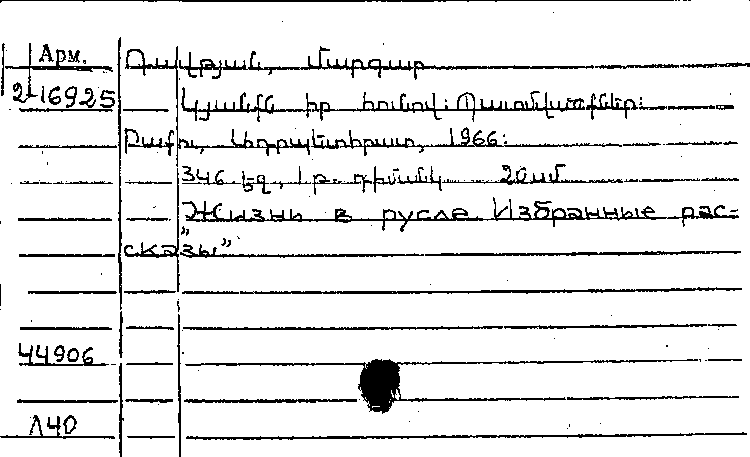 Арм. Դավթյան, Մարգար
2-16925 Կյանքն իր հունով: Պատմվածքներ:
Բաքու, Ադրպետհրատ, 1966:
346 էջ, 1 թ. դիմանկ 20սմ
„Жизнь в русле. Избранные рас-
сказы”
44906
Л40